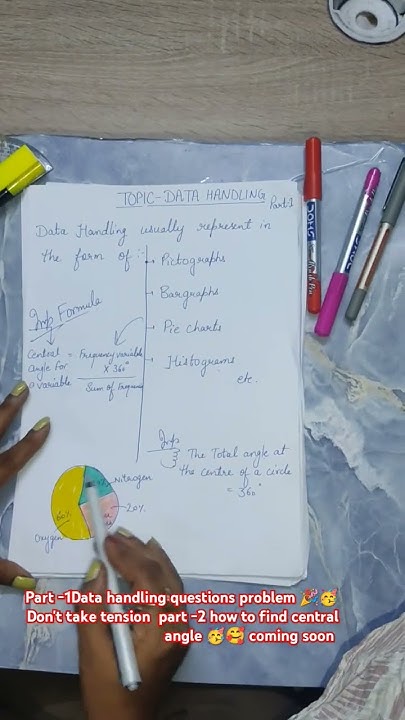 TOPIC-DATA HANDLING
Part-1
Data Handling usually represent in
the form of :-
Pictographs
Bargraphs
Pie charts
Histograms
etc.
Imp Formula
Central = Frequency variable
angle for × 360°
a variable Sum of Frequency
Imp
The Total angle at
the centre of a circle
= 360°
Nitrogen
20%
60%
Oxygen
Part -1Data handling questions problem 🎉🥳
Don't take tension part -2 how to find central
angle 🥳🥰 coming soon